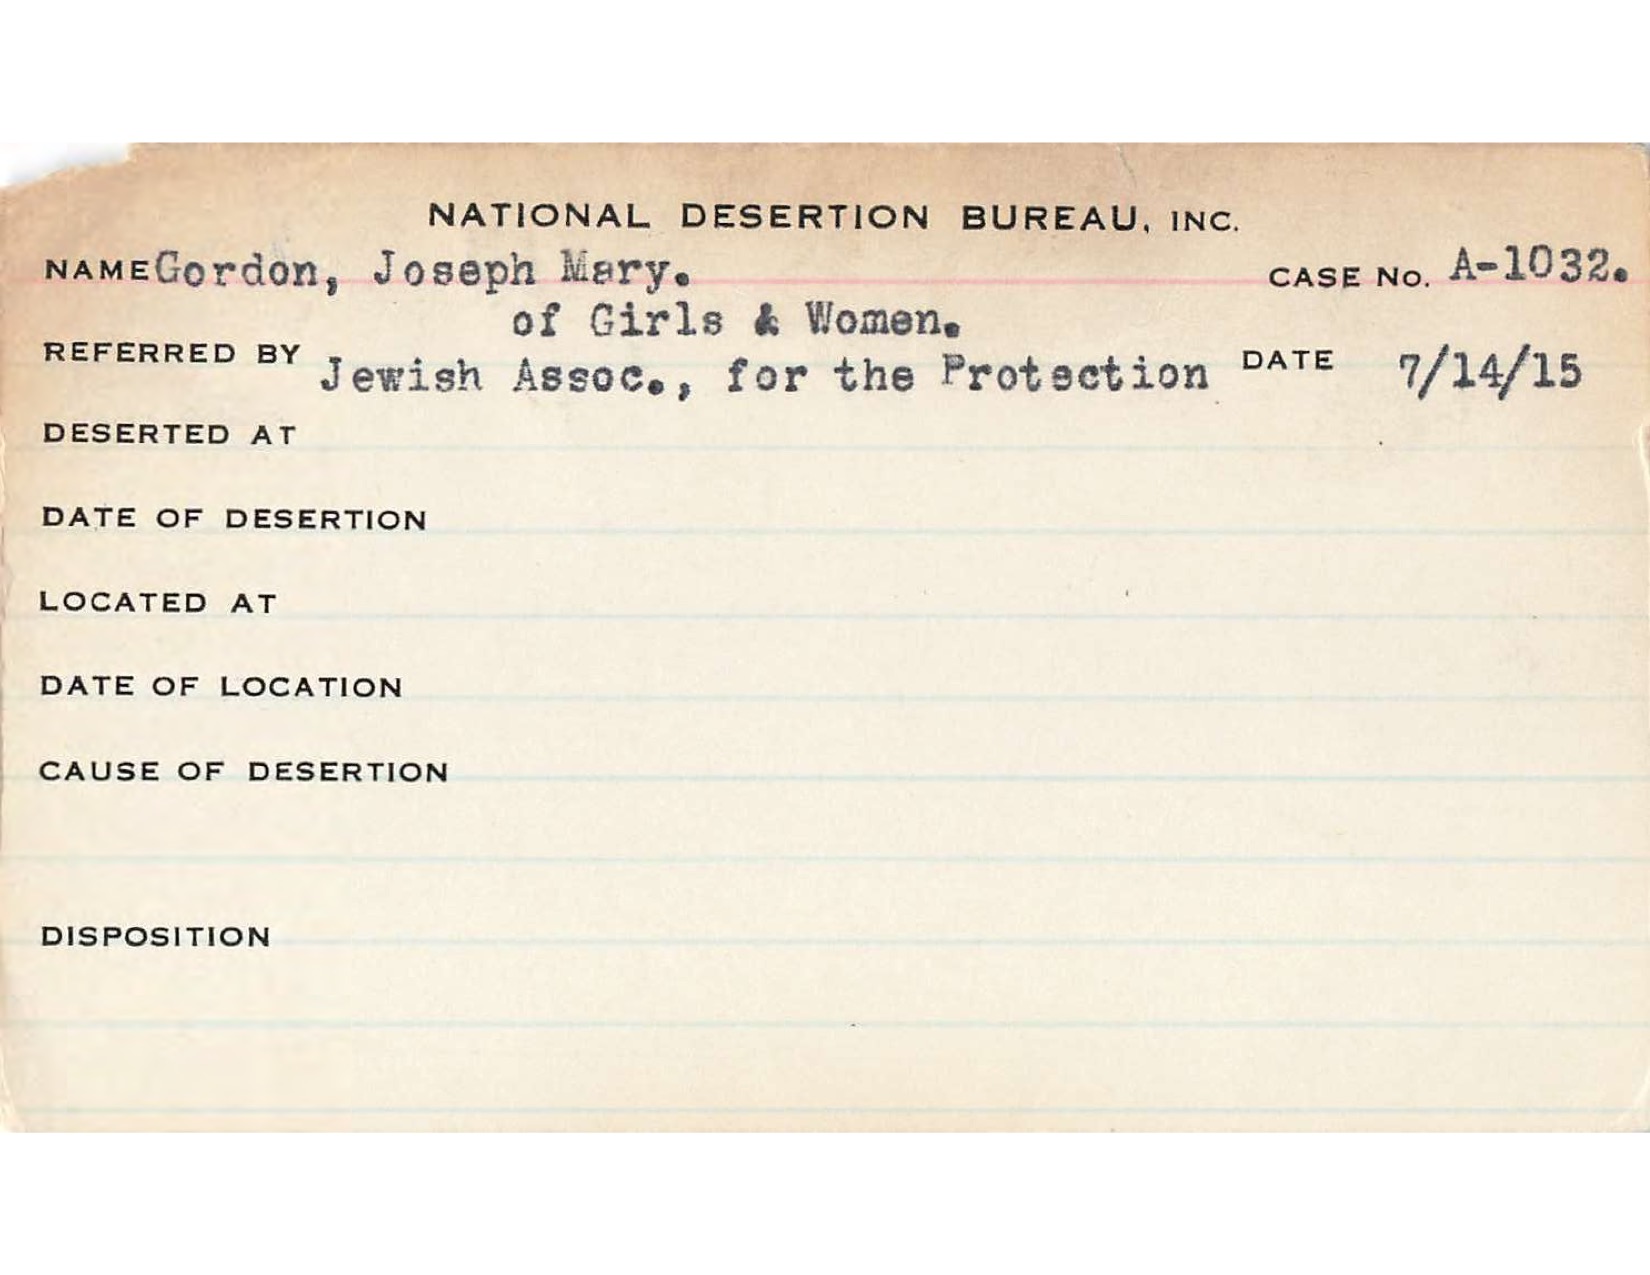 NATIONAL DESERTION BUREAU, INC.
NAME Gordon, Joseph Mary. CASE No. A-1032.
of Girls & Women.
REFERRED BY Jewish Assoc., for the Protection DATE 7/14/15
DESERTED AT
DATE OF DESERTION
LOCATED AT
DATE OF LOCATION
CAUSE OF DESERTION
DISPOSITION